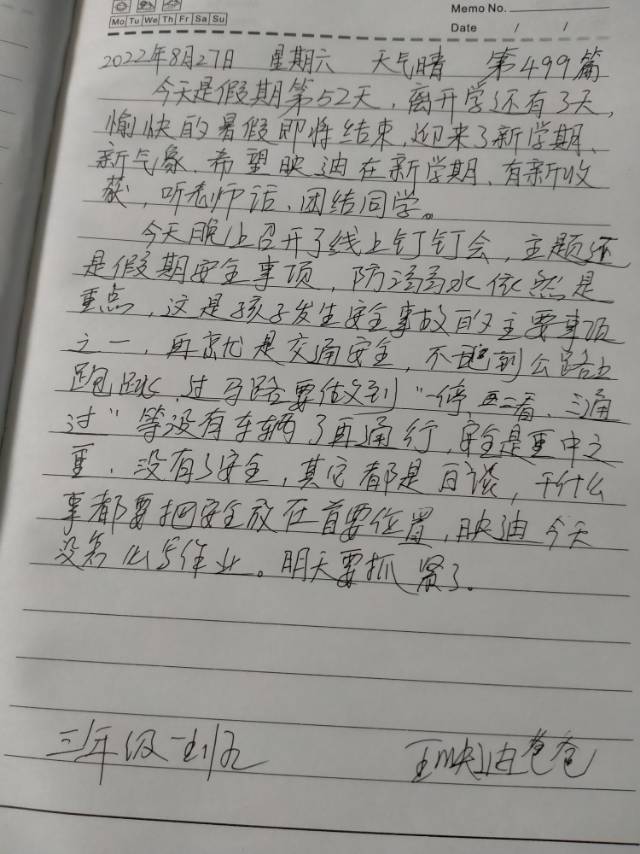 Memo No.
Mo Tu We Th Fr Sa Su
Date / /
2022年8月27日 星期六 天气晴 第499篇
今天是假期第52天，离开学还有3天，
愉快的暑假即将结束，迎来了新学期、
新气象、希望映油在新学期、有新收
获，听老师话、团结同学。
今天晚上召开了线上钉钉会，主题还
是假期安全事项，防溺水依然是
重点，这是孩子发生安全事故的主要事项
之一，再就是交通安全，不跑到公路上
跑跳、过马路要做到“一停，二看、三通
过”等没有车辆了再通行，安全是重中之
重，没有了安全，其它都是白谈，干什么
事都要把安全放在首要位置，映油今天
没怎么写作业。明天要抓紧了。
三年级一班
王映油爸爸